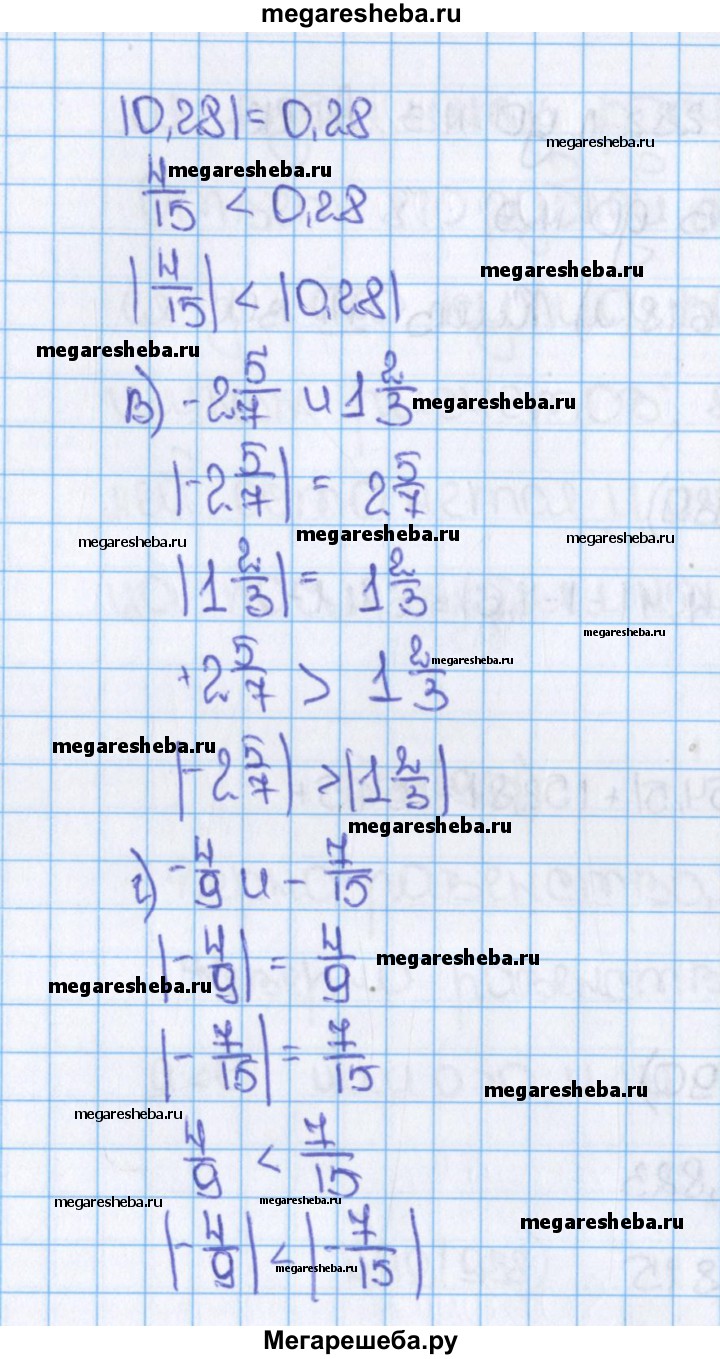 megaresheba.ru
|0,28| = 0,28
megaresheba.ru
megaresheba.ru
4/15 < 0,28
megaresheba.ru
|4/15| < |0,28|
megaresheba.ru
в) -2 5/7 и 1 2/3
megaresheba.ru
|-2 5/7| = 2 5/7
megaresheba.ru
megaresheba.ru
megaresheba.ru
|1 2/3| = 1 2/3
megaresheba.ru
megaresheba.ru
+2 5/7 > 1 2/3
megaresheba.ru
|-2 5/7| > |1 2/3|
megaresheba.ru
г) -4/9 и -7/15
megaresheba.ru
|-4/9| = 4/9
megaresheba.ru
|-7/15| = 7/15
megaresheba.ru
megaresheba.ru
4/9 < 7/15
megaresheba.ru
megaresheba.ru
megaresheba.ru
|-4/9| < |-7/15|
megaresheba.ru
Мегарешеба.ру